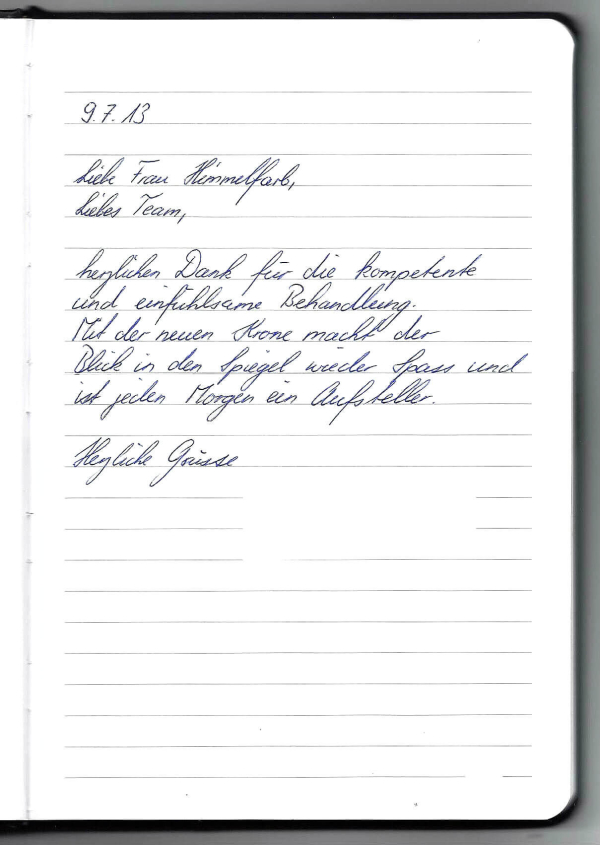 9.7.13
Liebe Frau Himmelfarb,
Liebes Team,
herzlichen Dank für die kompetente
und einfühlsame Behandlung.
Mit der neuen Krone macht der
Blick in den Spiegel wieder Spass und
ist jeden Morgen ein Aufsteller.
Herzliche Grüsse